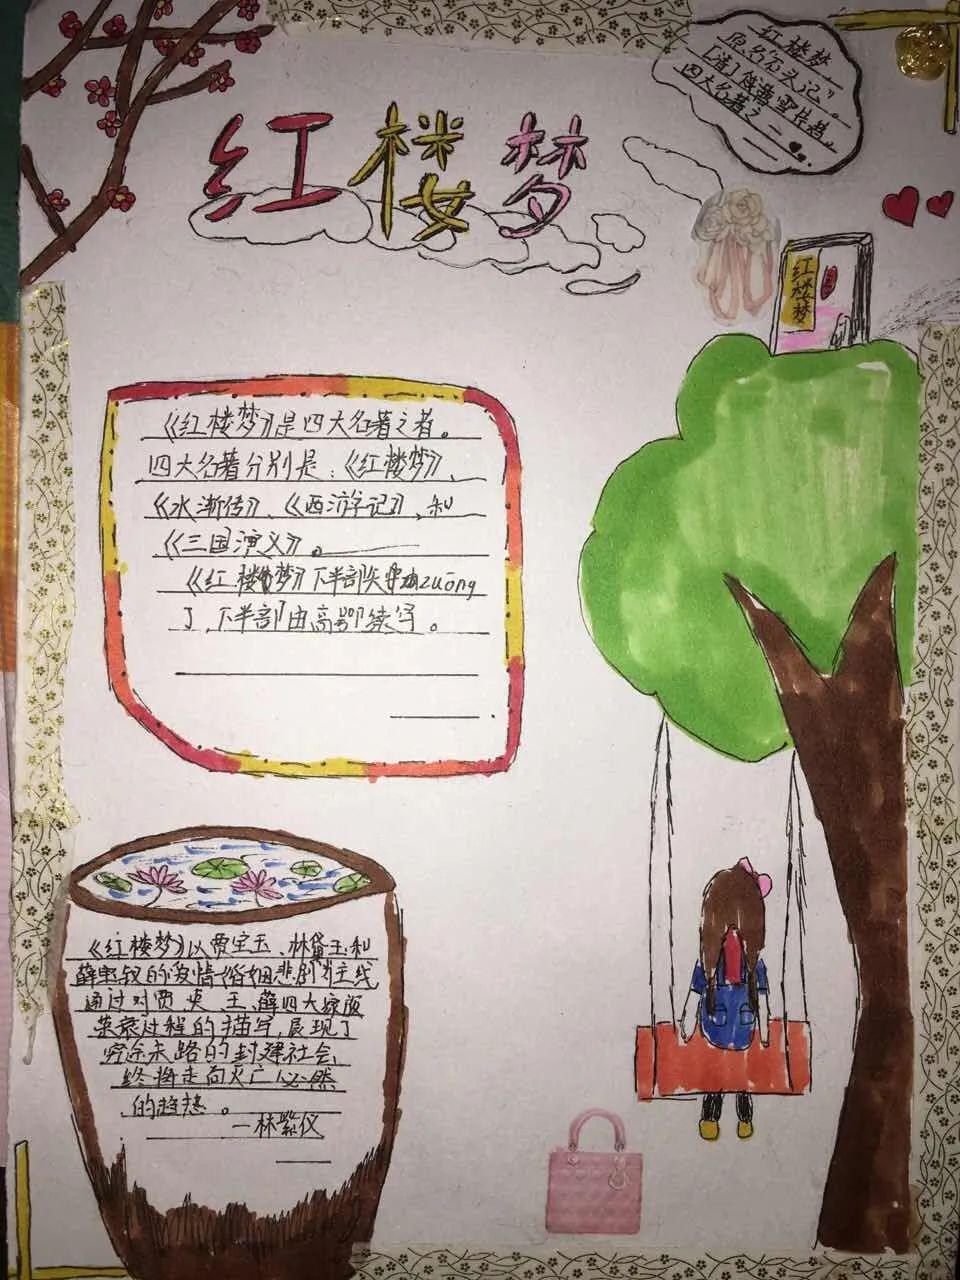 红楼梦
红楼梦
原名"石头记"
四大名著之一
红楼梦
《红楼梦》是四大名著之者。
四大名著分别是:《红楼梦》、
《水浒传》、《西游记》、和
《三国演义》。
《红楼梦》下半部失zuōng
了,下半部由高鹗续写。
《红楼梦》以贾宝玉、林黛玉和
薛宝钗的爱情婚姻悲剧为主线
通过对贾 史 王、薛四大家族
荣衰过程的描写,展现了
穷途末路的封建社会,
终将走向灭亡必然
的趋势。
一林紫仪